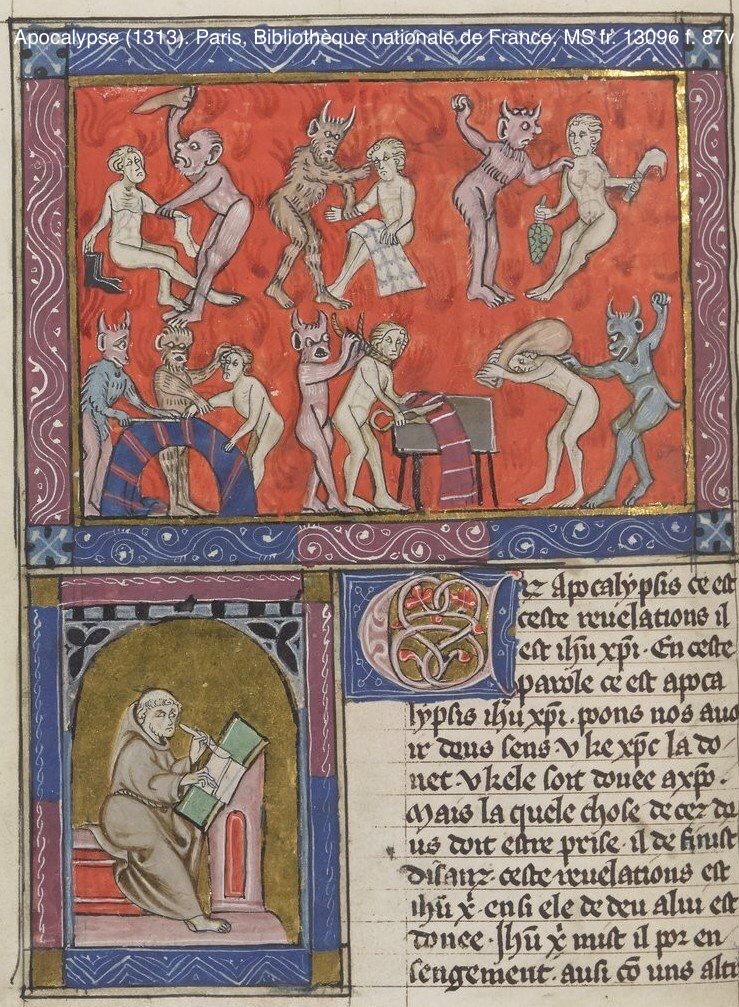 Apocalypse (1313). Paris, Bibliothèque nationale de France, MS fr. 13096 f. 87v
Apocalypsis ce est
ceste reuelations il
est ihu xpi. En ceste
parole ce est apoca
lypsis ihu xpi. poons nos auo
ir deus sens v ke xpc la do
net. v kele soit donee a xpo.
Mais la quele chose de cez do
us doit estre prise. il defenist
disanz. ceste reuelations est
ihu x. ensi ele de deu a lui est
donee. Ihu x mist il por en
sengement. ausi co uns alti